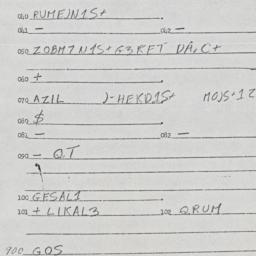 040 RUMEJN1S+
041 — 042 —
050 ZOBM7N1S+G3RFT DÁ,C+
060 +
070 AZIL )-HEKD1S+ MOJS+12
080 $
081 — 082 —
090 — QT
100 GESAL1
101 + LIKAL3 102 QRUM
900 GOS